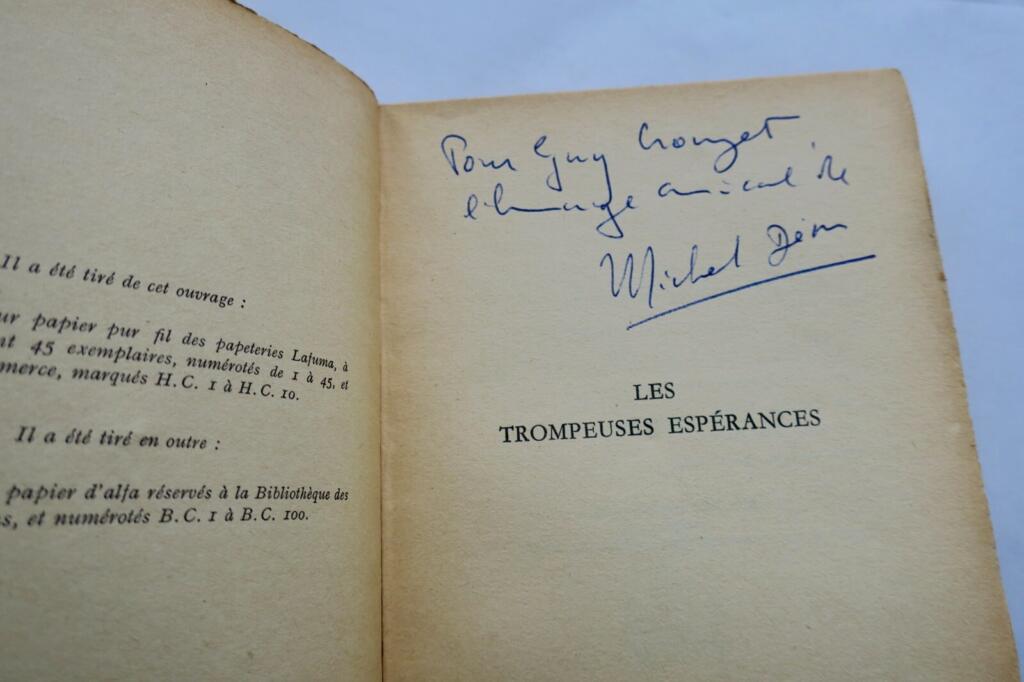 Il a été tiré de cet ouvrage :
ur papier pur fil des papeteries Lafuma, à
nt 45 exemplaires, numérotés de 1 à 45, et
merce, marqués H.C. 1 à H.C. 10.
Il a été tiré en outre :
papier d'alfa réservés à la Bibliothèque des
s, et numérotés B.C. 1 à B.C. 100.
Pour Guy Crouzet
l'hommage amical de
Michel Déon
LES
TROMPEUSES ESPÉRANCES